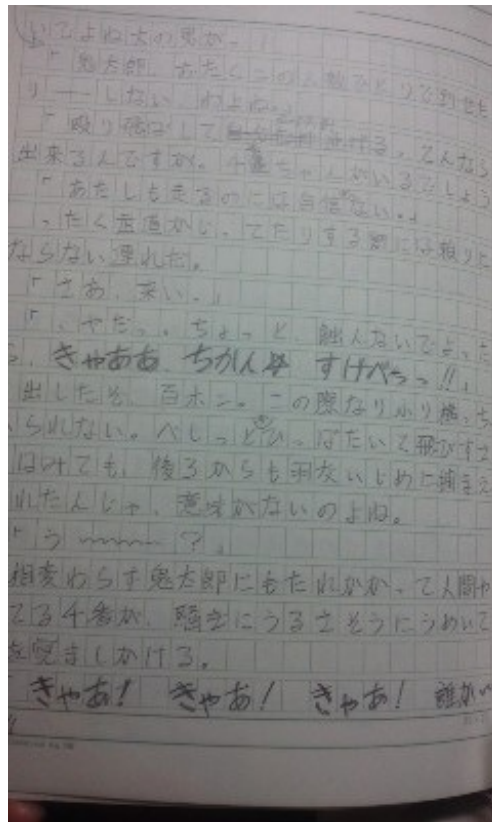 てよね、犬の鬼が。
「鬼太郎、あたくこの人数ひとりで倒せた
りーーしない、わよね。」
「殴り飛ばして逃げる、てんなら
出来るんですが。千番ちゃんがいるでしょう
「あたしも走るのには自信ない。」
ったく歩道かじってたりする割には頼りに
ならない連れだ。
「さあ、来い。」
「やだっ。ちょっと、触んないでよった
ら、きゃああ ちかん すけべっっ!!」
出したぞ、百ホン。この際なりふり構っち
ゃられない。べしっとひっぱたいて飛びすさ
はいいても、後ろからも羽交いじめに捕まえ
れたんじゃ、意味がないのよね。
「う〜〜〜〜?」
相変わらず鬼太郎にもたれかかって人間や
てる千番が、騒ぎにうるさそうにうめいて
を覚ましかける。
「きゃあ! きゃあ! きゃあ! 誰か